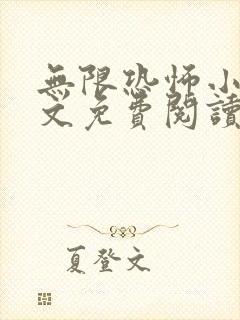 無限恐怖小
文免費閱讀
夏登文